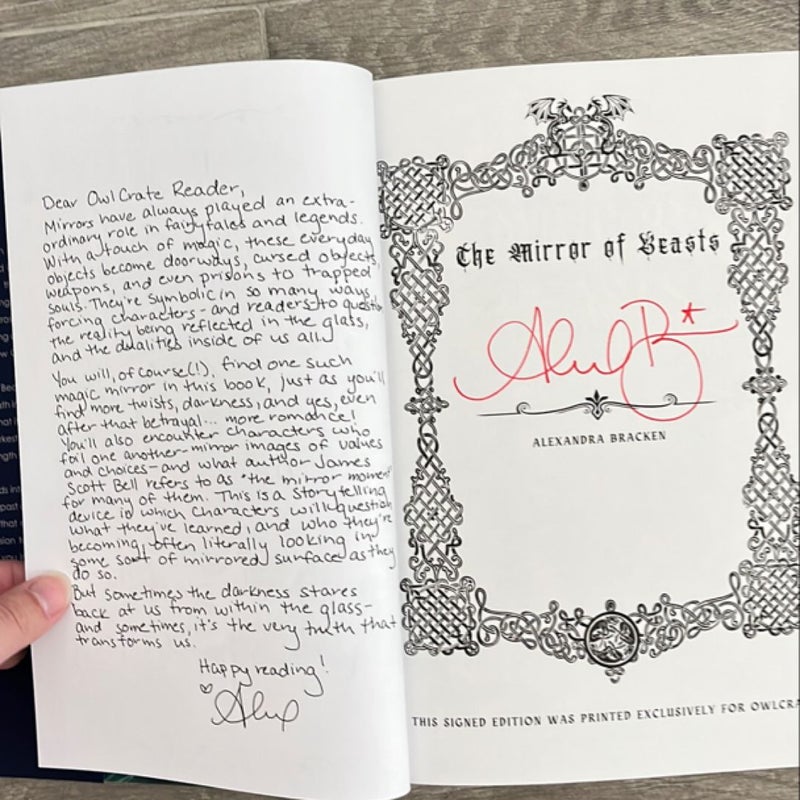 Dear OwlCrate Reader,
Mirrors have always played an extra-
ordinary role in fairytales and legends.
With a touch of magic, these everyday
objects become doorways, cursed objects,
weapons, and even prisons to trapped
souls. They're symbolic in so many ways,
forcing characters - and readers - to question
the reality being reflected in the glass,
and the dualities inside of us all.
You will, of course(!), find one such
magic mirror in this book, just as you'll
find more twists, darkness, and yes, even
after that betrayal... more romance!
You'll also encounter characters who
foil one another - mirror images of values
and choices - and what author James
Scott Bell refers to as "the mirror moment"
for many of them. This is a storytelling
device in which characters will question
what they've learned, and who they're
becoming, often literally looking in
some sort of mirrored surface as they
do so.
But sometimes the darkness stares
back at us from within the glass -
and sometimes, it's the very truth that
transforms us.
Happy reading!
♡ Alex
The Mirror of Beasts
ALEXANDRA BRACKEN
THIS SIGNED EDITION WAS PRINTED EXCLUSIVELY FOR OWLCRA